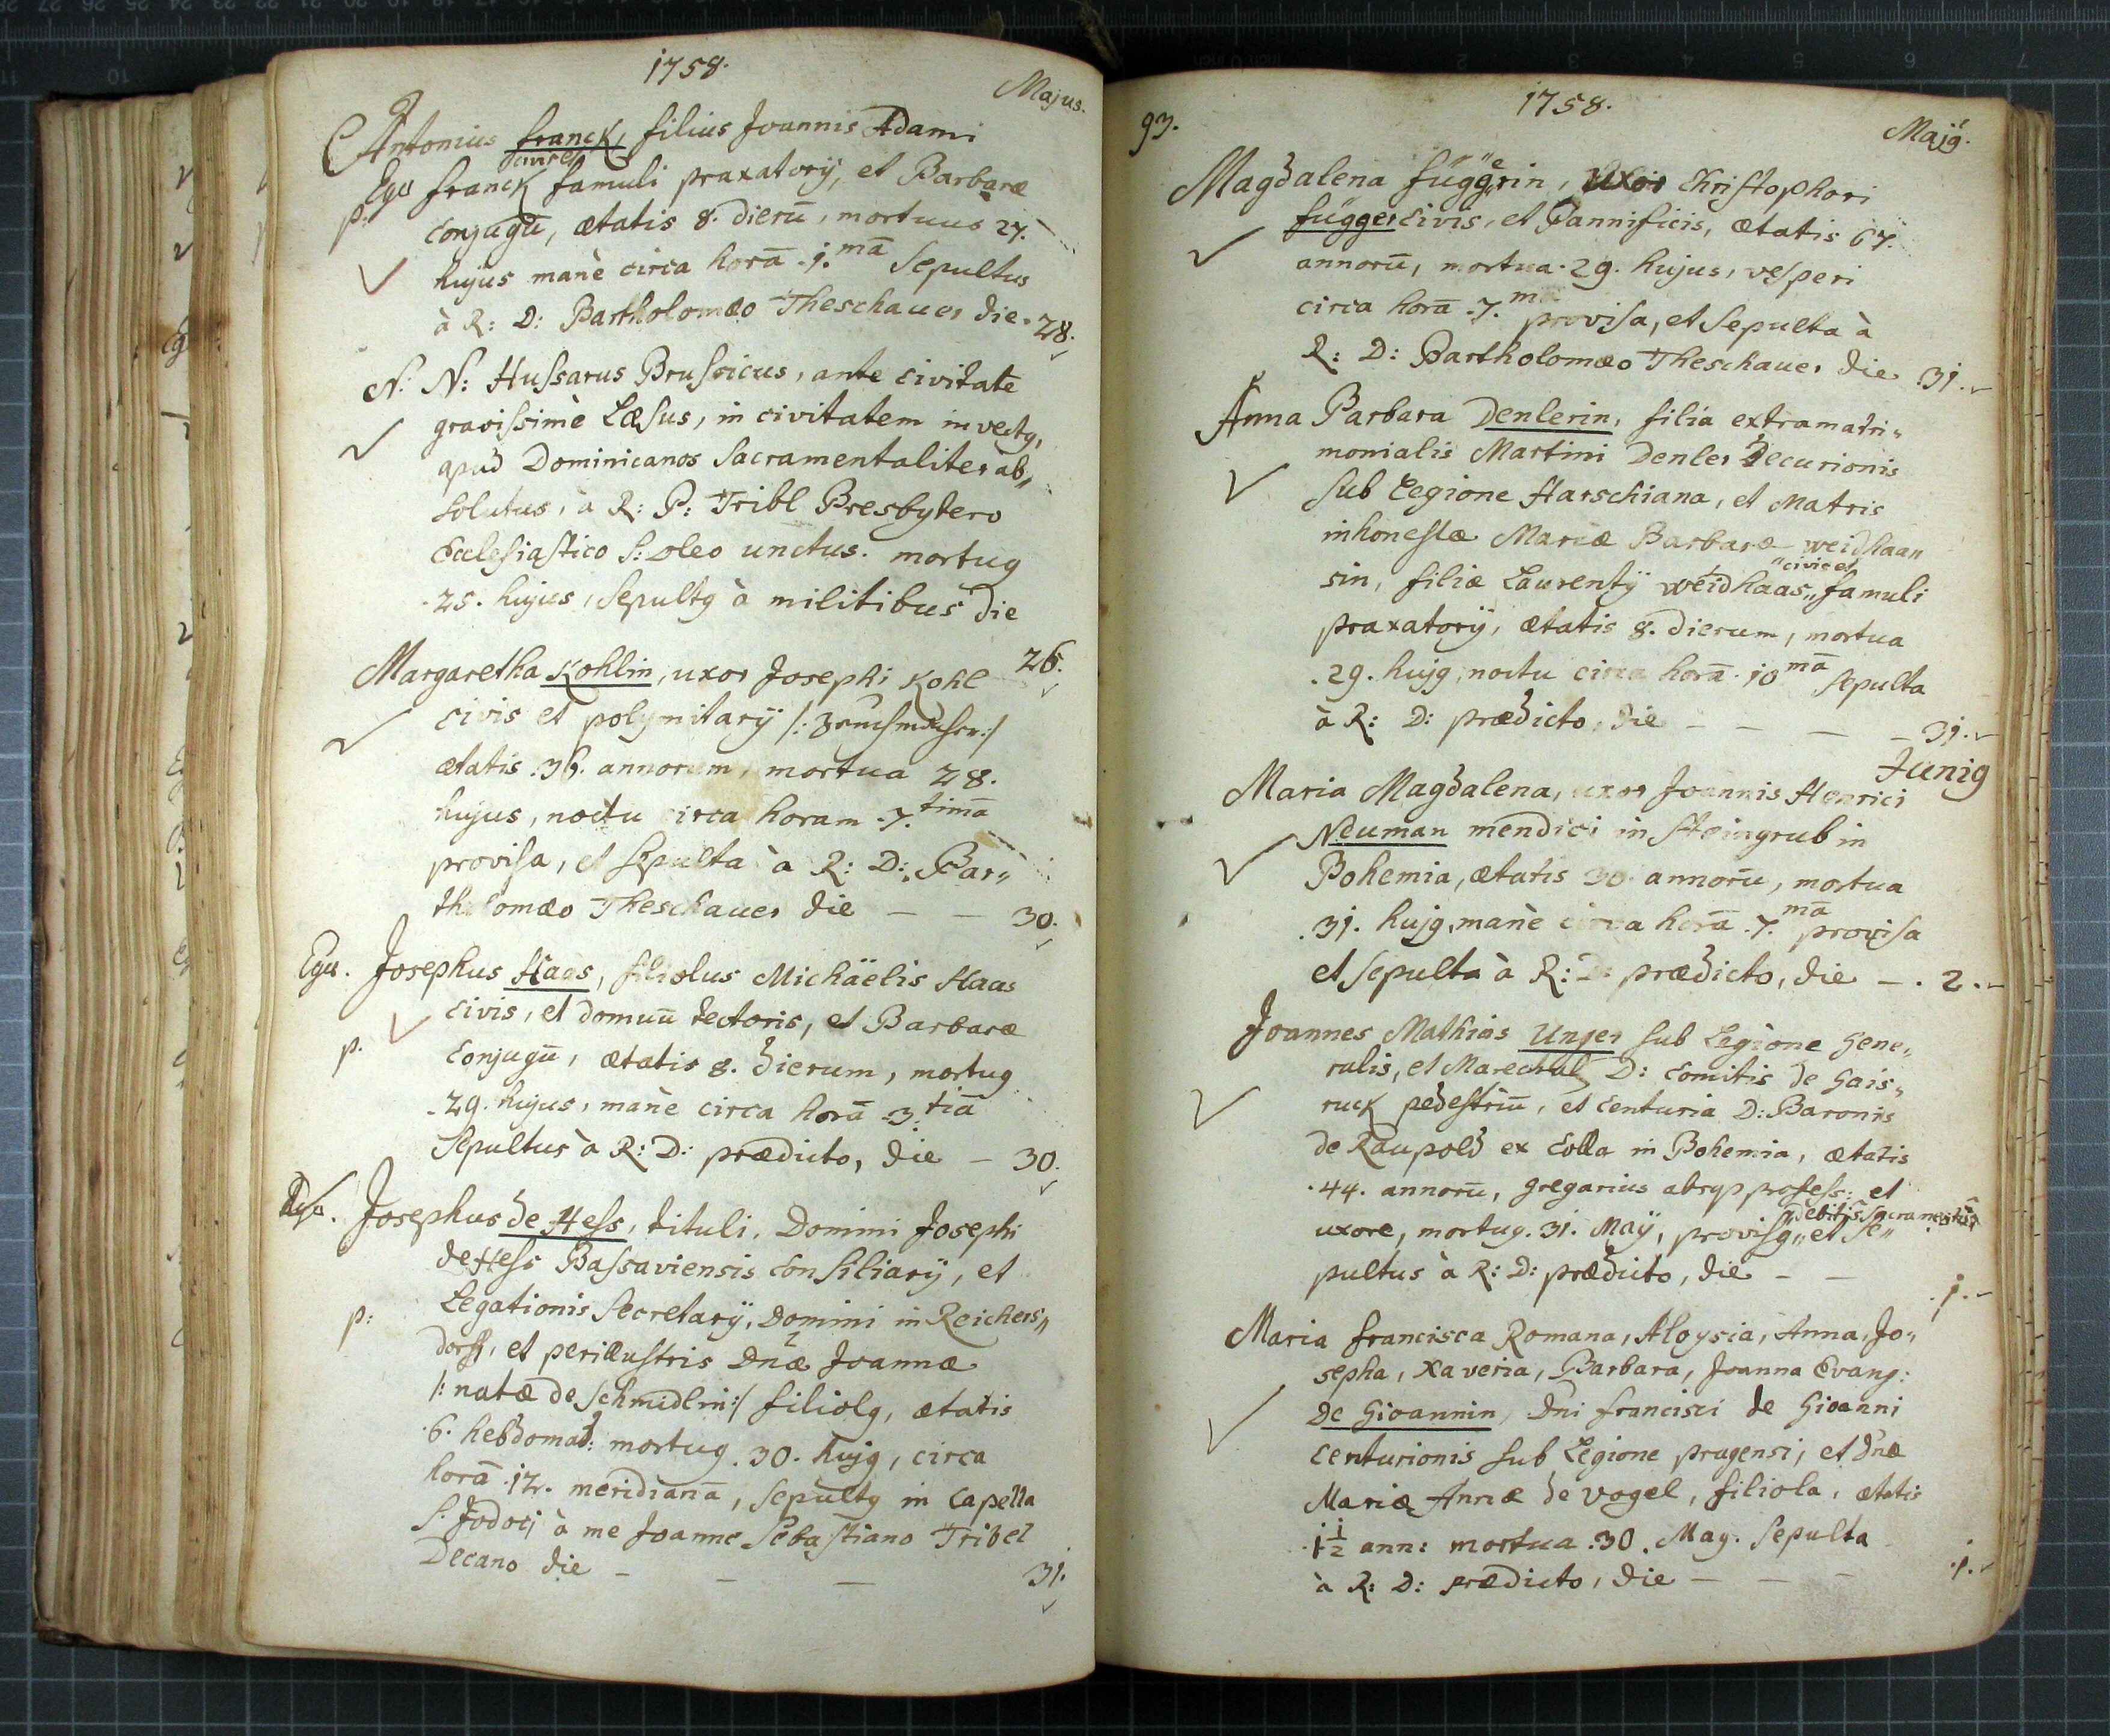 1758.
Majus.
Antonius franck, filius Joannis Adami
civis et
Egrae franck famuli praxatorÿ, et Barbaræ
p.
conjugū, ætatis 8. dierū, mortuus 27.
hujus manè circa horā .1.mā Sepultus
à R: D: Bartholomæo Theschauer die . 28.
N: N: Hussarus Brussicus, ante civitatē
gravissimè Læsus, in civitatem invectg,
apud Dominicanos Sacramentaliter ab„
solutus, à R: P: Tribl Presbytero
Ecclesiastico S: oleo unctus. mortug
.25. hujus, Sepultg à militibus die
26.
Margaretha Kohlin, uxor Josephi Kohl
civis et polymitarÿ /: Zeugmacher :/
ætatis .36. annorum, mortua 28.
hujus, noctu circa horam .7.timā
provisa, et Sepulta à R: D: Bar„
tholomæo Theschauer die — — 30.
Egrae. Josephus Haas, filiolus Michäelis Haas
civis, et domuū tectoris, et Barbaræ
p.
Conjugū, ætatis 8. dierum, mortug
.29. hujus, manè circa horā .3.tiā
Sepultus à R: D: prædicto, die — 30.
Josephus de Hess, tituli, Domini Josephi
de Hess Bassaviensis Consiliarÿ, et
p:
Legationis Secretarÿ, Domini in Reichers„
dorff, et perillustris Dnæ Joannæ
/: natæ de Schmidlin :/ filiolg, ætatis
.6. hebdomad: mortug .30. hujg, circa
horā .12. meridianā, Sepultg in Capella
S. Jodoci à me Joanne Sebastiano Tribel
Decano die — — — 31.
93.
1758.
Majg.
Magdalena függerin, Uxor Christophori
függer civis, et Pannificis, ætatis 67.
annorū, mortua .29. hujus, vesperi
circa horā .7.mā provisa, et Sepulta à
R: D: Bartholomæo Theschauer die .31.
Anna Barbara Denlerin, filia extramatri„
monialis Martini Denler Decurionis
sub Legione Harschiana, et Matris
inhonestæ Mariæ Barbaræ weidhaa„
„civis et
sin, filiæ Laurentÿ weidhaas„ famuli
praxatorÿ, ætatis 8. dierum, mortua
.29. hujg, noctu circa horā .10mā sepulta
à R: D: prædicto, die — — — — 31.
Junig
Maria Magdalena, uxor Joannis Henrici
Neuman mendici in Steingrub in
Bohemia, ætatis 30. annorū, mortua
.31. hujg, manè circa horā .7.mā provisa
et Sepulta à R: D: prædicto, die — . 2.
Joannes Mathias Unger sub Legione Gene„
ralis, et Marechal D: Comitis de Gais„
ruck pedestriū, et Centuria D: Baronis
de Raupold ex Colla in Bohemia, ætatis
.44. annorū, gregarius absqs profess: et
debitis Sacramentis
uxore, mortug .31. Maÿ, provisg„ et Se„
pultus à R: D: prædicto, die — —
.1.
Maria Francisca Romana, Aloysia, Anna, Jo„
sepha, Xaveria, Barbara, Joanna Evang:
De Gioannin, Dni Francisci de Gioanni
Centurionis sub Legione pragensi, et Dnæ
Mariæ Annæ de Vogel, filiola, ætatis
.1 1/2 ann: mortua .30. May. Sepulta
à R: D: prædicto, die — — — .1.